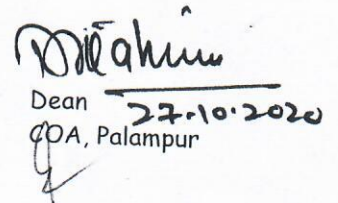 Dean
27.10.2020
COA, Palampur